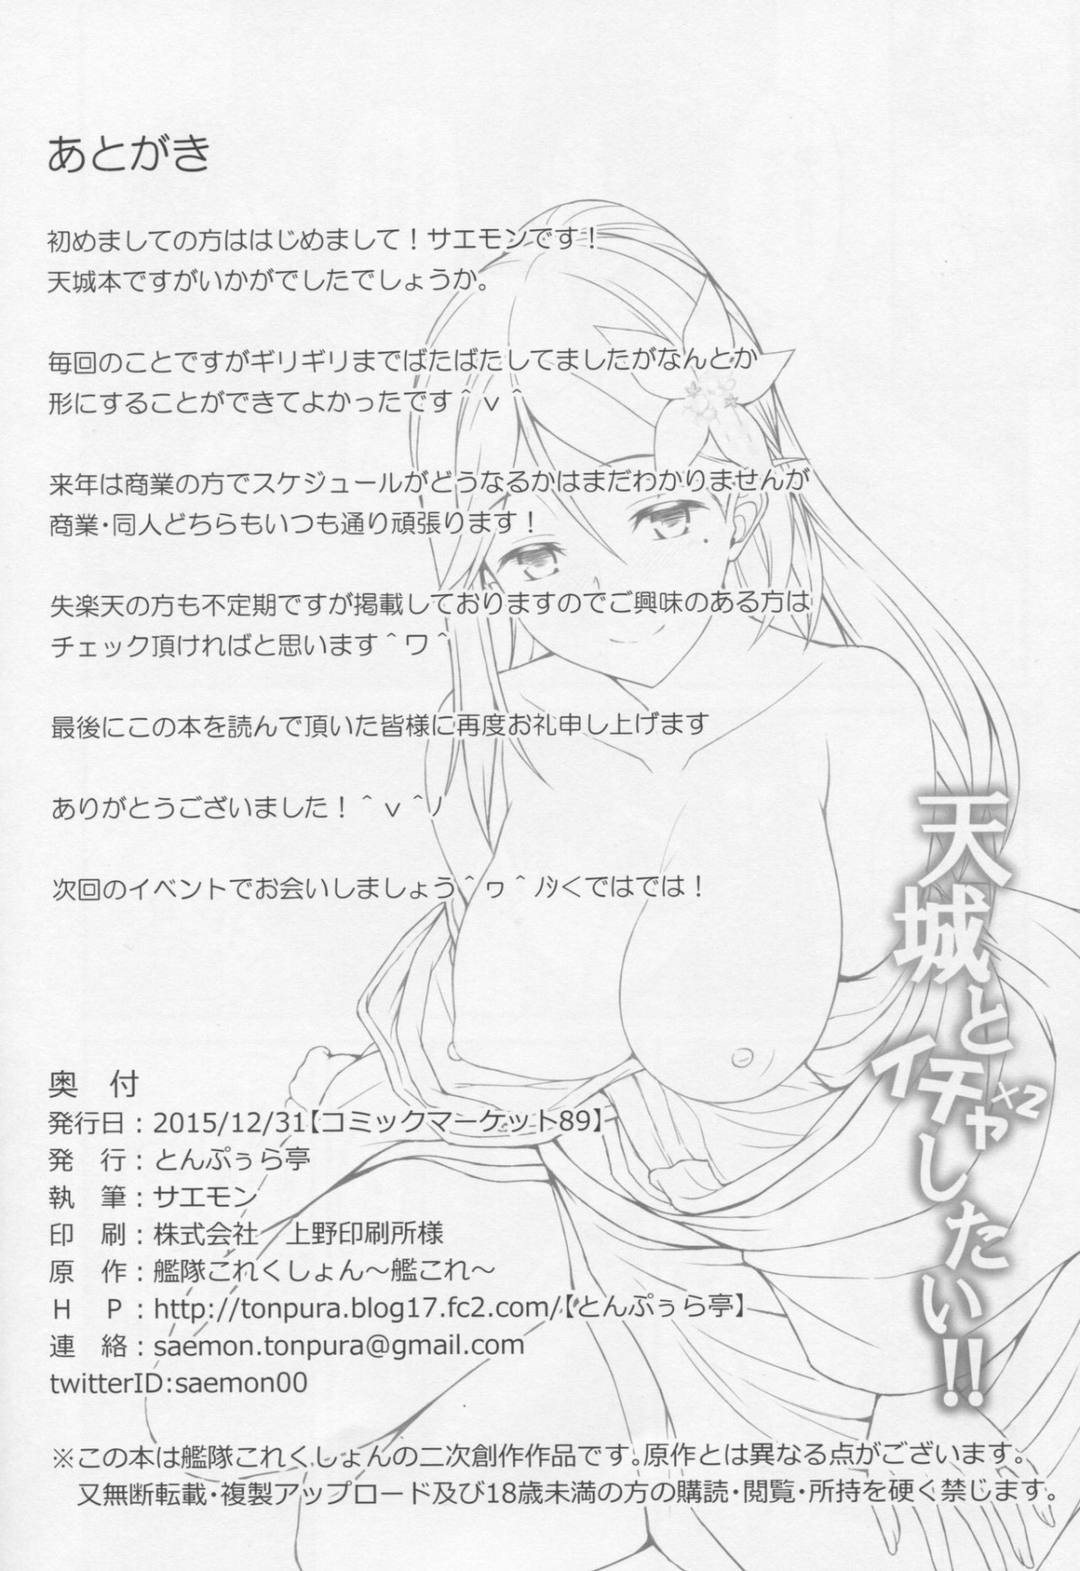 あとがき
初めましての方ははじめまして！サエモンです！
天城本ですがいかがでしたでしょうか。
毎回のことですがギリギリまでばたばたしてましたがなんとか
形にすることができてよかったです＾ｖ＾
来年は商業の方でスケジュールがどうなるかはまだわかりませんが
商業・同人どちらもいつも通り頑張ります！
失楽天の方も不定期ですが掲載しておりますのでご興味のある方は
チェック頂ければと思います＾ワ＾
最後にこの本を読んで頂いた皆様に再度お礼申し上げます
ありがとうございました！＾ｖ＾ﾉ
次回のイベントでお会いしましょう＾ヮ＾ﾉｼくではでは！
天城とイチャ×2したい!!
奥　付
発行日：2015/12/31【コミックマーケット89】
発　行：とんぷぅら亭
執　筆：サエモン
印　刷：株式会社　上野印刷所様
原　作：艦隊これくしょん～艦これ～
Ｈ　Ｐ：http://tonpura.blog17.fc2.com/【とんぷぅら亭】
連　絡：saemon.tonpura@gmail.com
twitterID:saemon00
※この本は艦隊これくしょんの二次創作作品です。原作とは異なる点がございます。
又無断転載・複製アップロード及び18歳未満の方の購読・閲覧・所持を硬く禁じます。